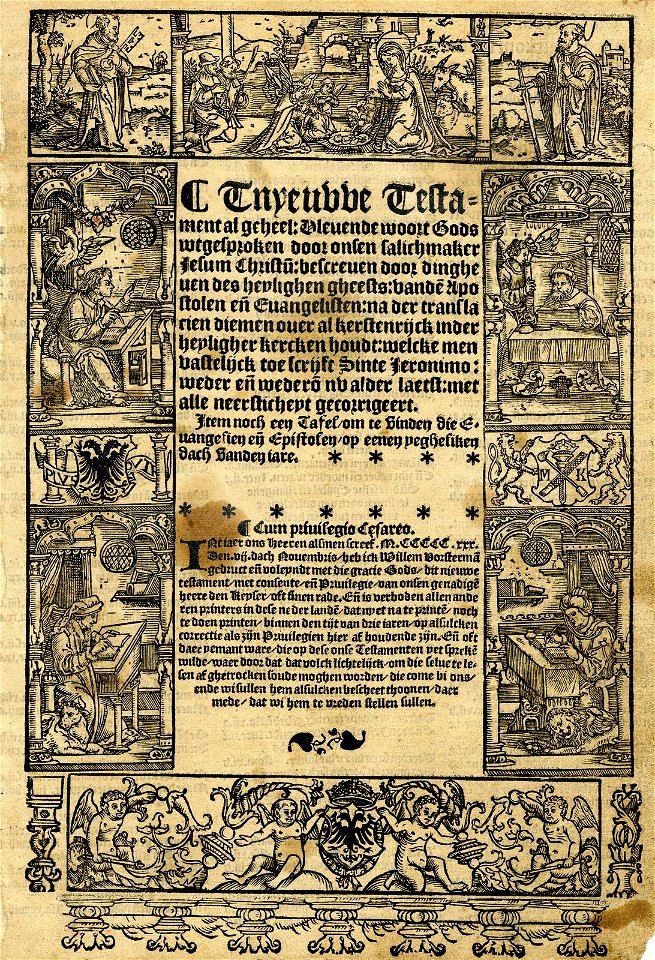 ¶ Tnyeuwe Testa-
ment al geheel: Dleuende woort Gods
wtgesproken door onsen salichmaker
Jesum Christū: bescreuen door dinghe
uen des heylighen gheests: vandē Apo
stolen eñ Euangelisten: na der transla
cien diemen ouer al kerstenrijck inder
heyligher kercken houdt: welcke men
vastelijck toe scrijft Sinte Jeronimo:
weder eñ wederō nv alder laetst: met
alle neersticheyt gecorrigeert.
Item noch een Tafel/om te vinden die E-
uangelien eñ Epistolen/op eenen yeghelikē
dach vanden iare. * * * *
* * * * * * *
¶ Cum priuilegio Cesareo.
INt iaer ons heeren alsmen screef. M.CCCCC.xxx.
Den.vij.dach Nouembris/heb ick Willem Vorstermā
gedruct eñ voleyndt met die gracie Gods/dit nieuwe
testament/met consente/eñ Priuilegie van onsen genadigē
heere den Keyser/oft sinen rade. Eñ is verboden allen ande
ren printers in dese neder landē/dat nyet na te printē/noch
te doen printen/binnen den tijt van drie iaren/op alsulcken
correctie als zijn Priuilegien hier af houdende zijn. Eñ oft
daer yemant ware/die op dese onse Testamenten yet sprekē
wilde/waer door dat dat volck lichtelijck/om die selue te le-
sen af ghetrocken soude moghen worden/die come bi ons
ende wi sullen hem alsulcken bescheet thoonen/daer
mede/dat wi hem te vreden stellen sullen.
M K